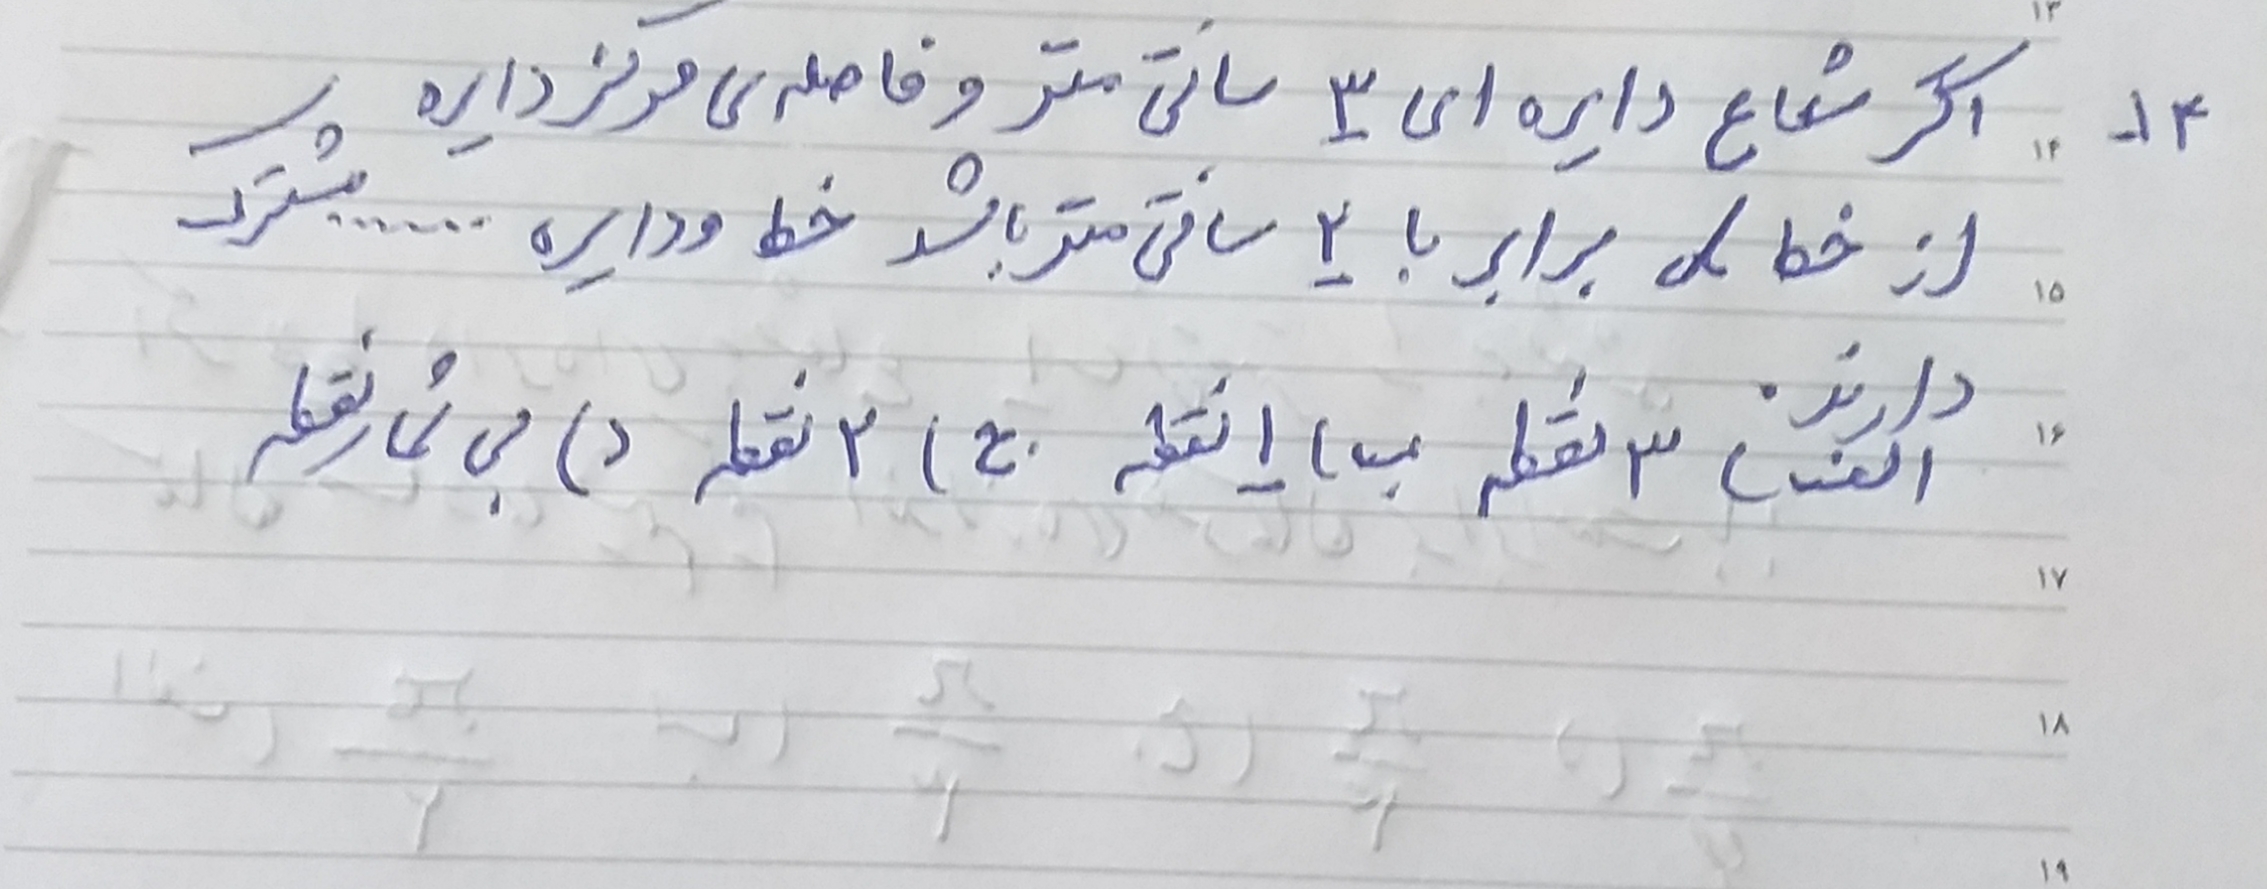 ۱۳
۱۴ـ اگر شعاع دایره ای ۳ سانتی متر و فاصله ی مرکز دایره
۱۴
از خط برابر با ۲ سانتی متر باشد خط و دایره ...... مشترک
۱۵
دارند.
الف) ۳ نقطه ب) ۱ نقطه ج) ۲ نقطه د) بی شمار نقطه
۱۶
۱۷
۱۸
۱۹